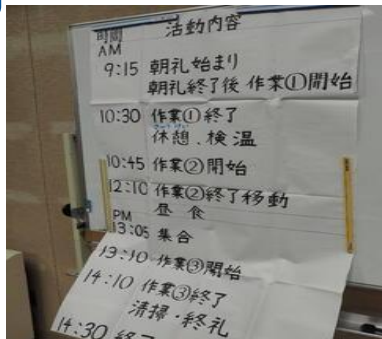 時間 活動内容
AM
9:15 朝礼始まり
朝礼終了後 作業①開始
10:30 作業①終了
休憩、検温
10:45 作業②開始
12:10 作業②終了移動
昼食
PM
13:05 集合
13:10 作業③開始
14:10 作業③終了
清掃・終礼
14:30